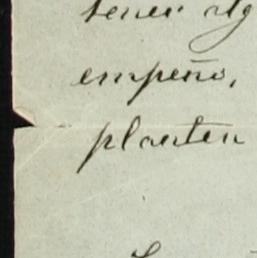 tener alg
empeño,
planten